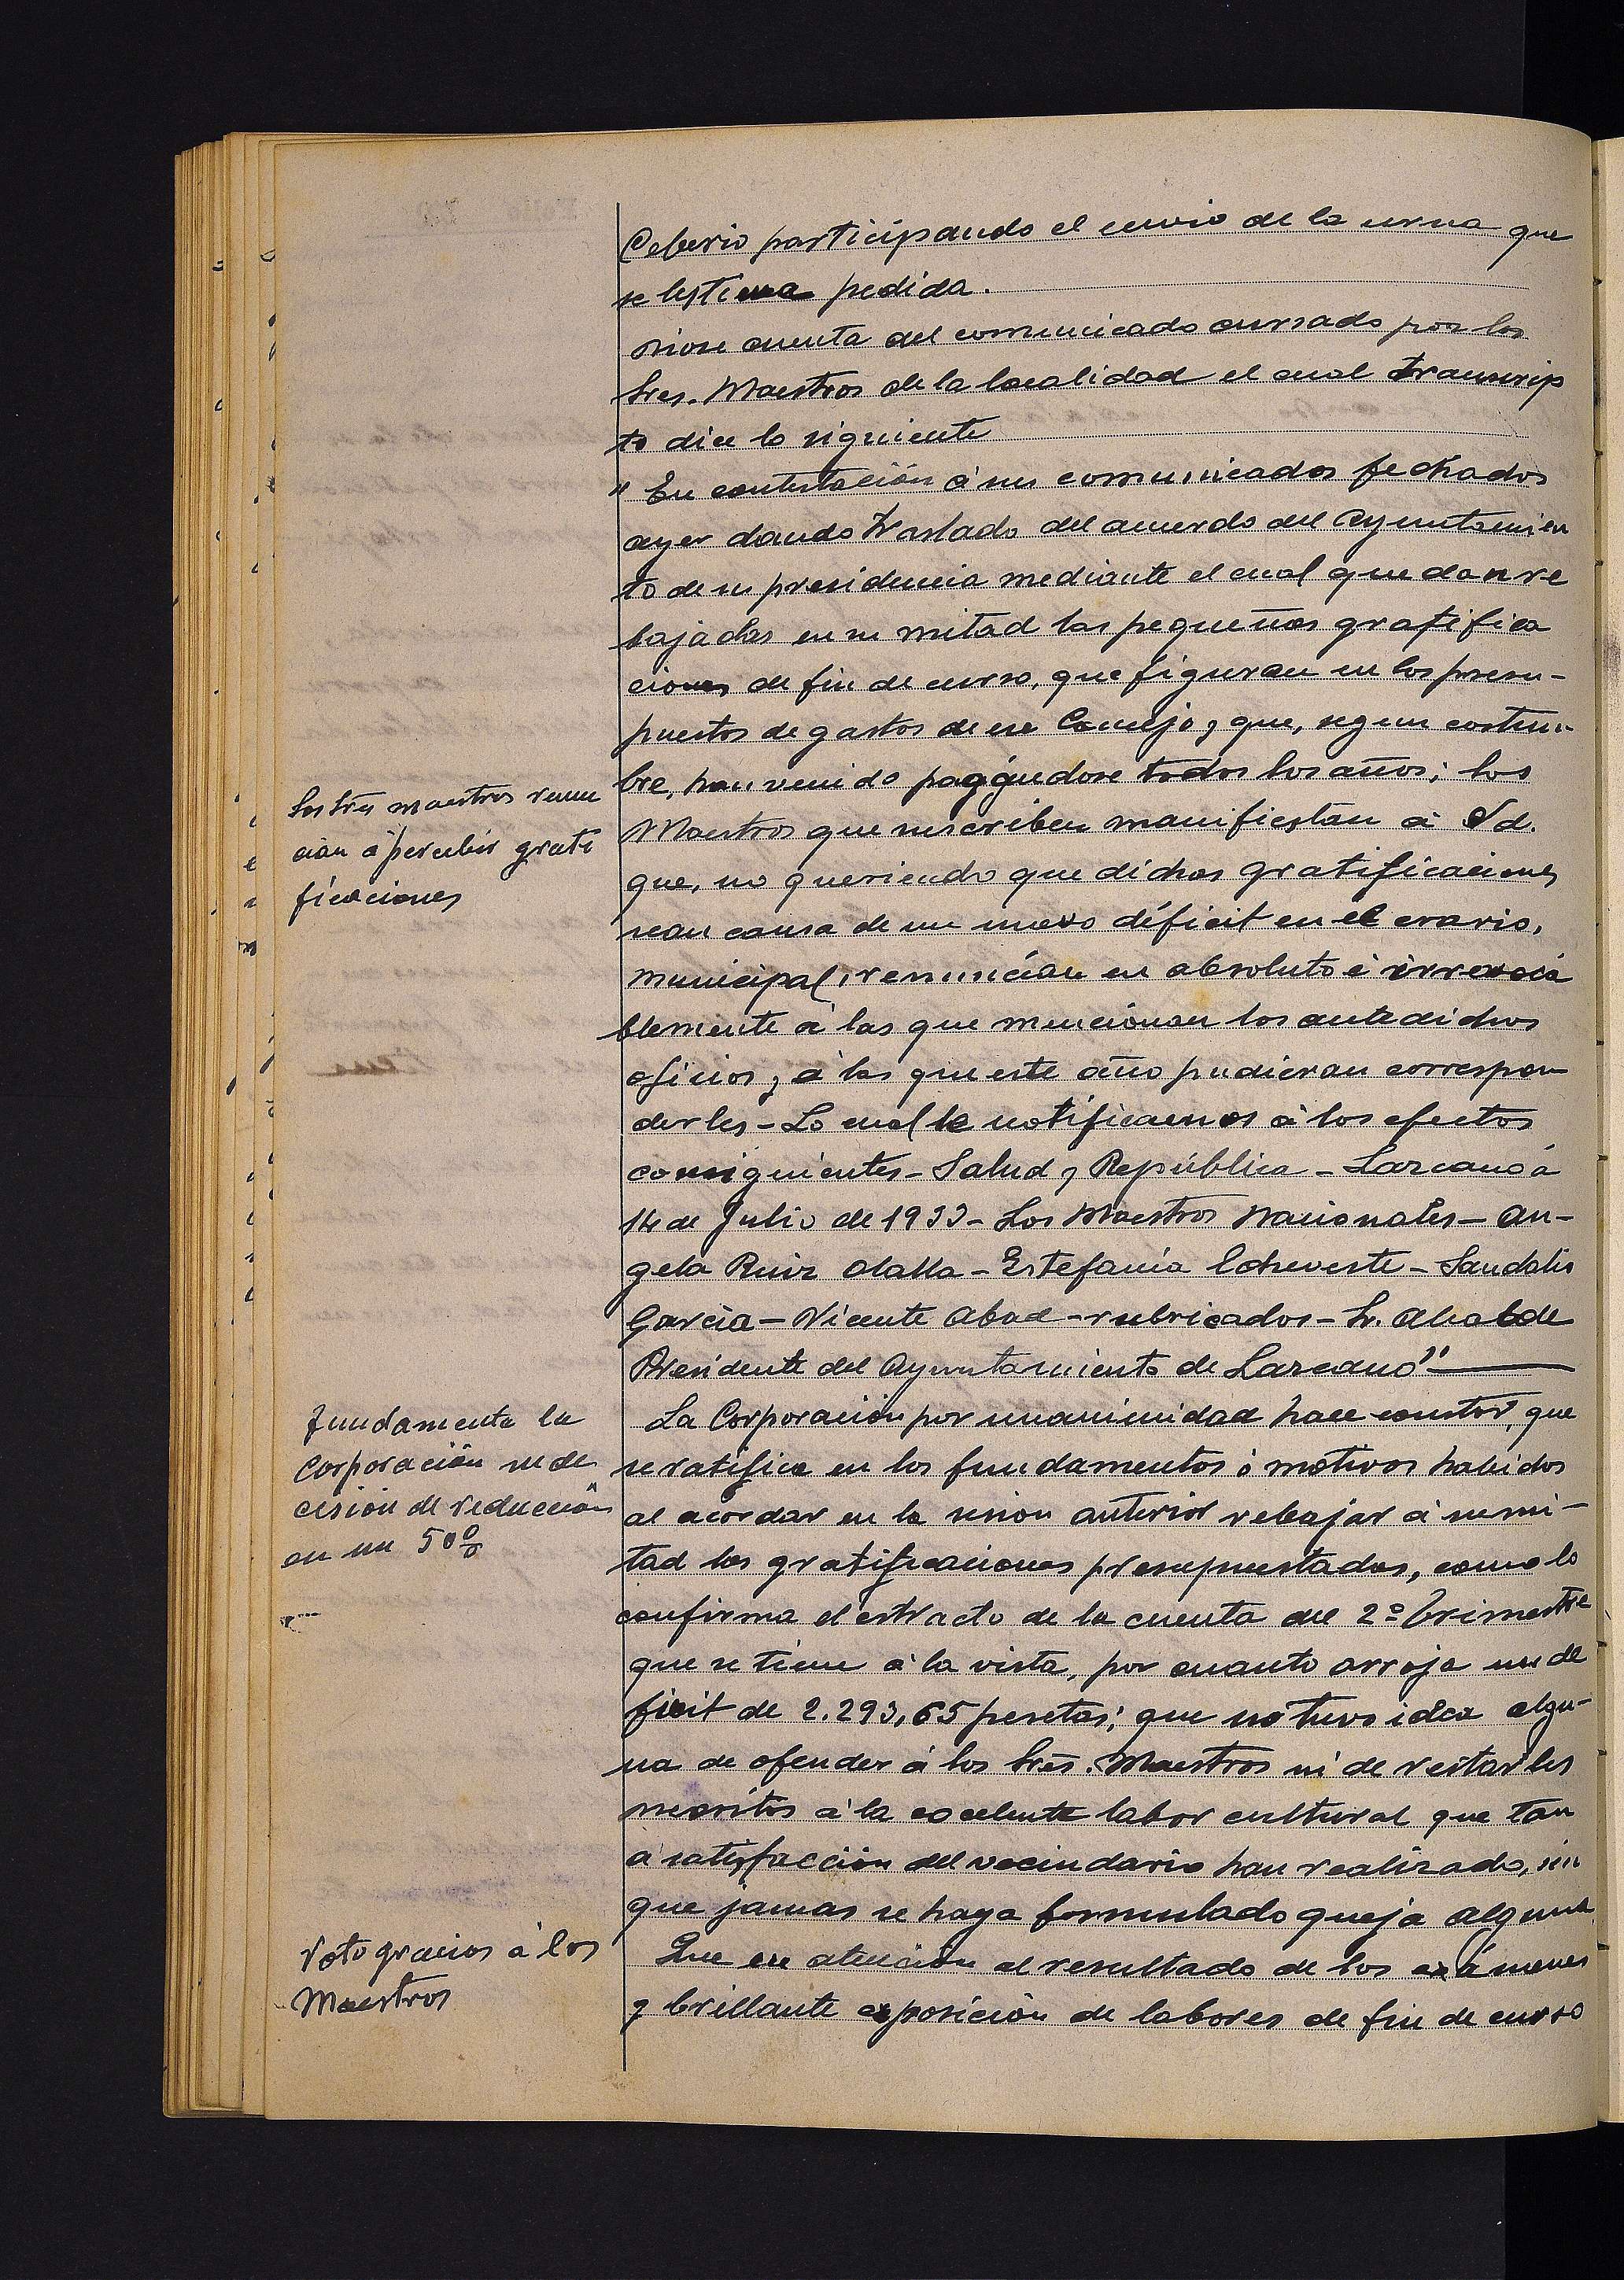 Ceberio participando el envio de la urna que
se les tiene pedida.
Diose cuenta del comunicado cursado por los
Sres. Maestros de la localidad el cual transcrip
to dice lo siguiente
" En contestación á sus comunicados fechados
ayer dando traslado del acuerdo del Ayuntamien
to de su presidencia mediante el cual quedan re
bajadas en su mitad las pequeñas gratifica
ciones de fin de curso, que figuran en los presu-
puestos de gastos de ese Concejo y que, segun costum-
bre, han venido pagándose todos los años; los
Maestros que suscriben manifiestan á Vd.
que, no queriendo que dichas gratificaciones
sean causa de un nuevo déficit en el erario,
municipal, renuncian en absoluto é irrevoca
blemente á las que mencionan los antedichos
oficios, y á las que este año pudieran correspon
derles - Lo cual le notificamos á los efectos
consiguientes - Salud y República - Lazcano á
14 de Julio de 1933 - Los Maestros Nacionales - An-
gela Ruiz Olalla - Estefanía Echeveste - Sandalio
García - Vicente Abad - rubricados - Sr. Alcalde
Presidente del Ayuntamiento de Lazcano"
Los Sres maestros renun
cian á percibir grati
ficaciones
La Corporación por unanimidad hace constar, que
se ratifica en los fundamentos ó motivos habidos
al acordar en la sesion anterior rebajar á su mi-
tad las gratificaciones presupuestadas, como lo
confirma el estracto de la cuenta del 2º trimestre
que se tiene á la vista, por cuanto arroja un de
ficit de 2.293,65 pesetas; que no tuvo idea algu-
na de ofender á los Sres. Maestros ni de restarles
meritos á la excelente labor cultural que tan
á satisfacción del vecindario han realizado, sin
que jamas se haya formulado queja alguna
Fundamenta la
Corporación su de
cisión de reducción
en un 50%
Que en atención al resultado de los exámenes
y brillante exposición de labores de fin de curso
Voto gracias á los
Maestros